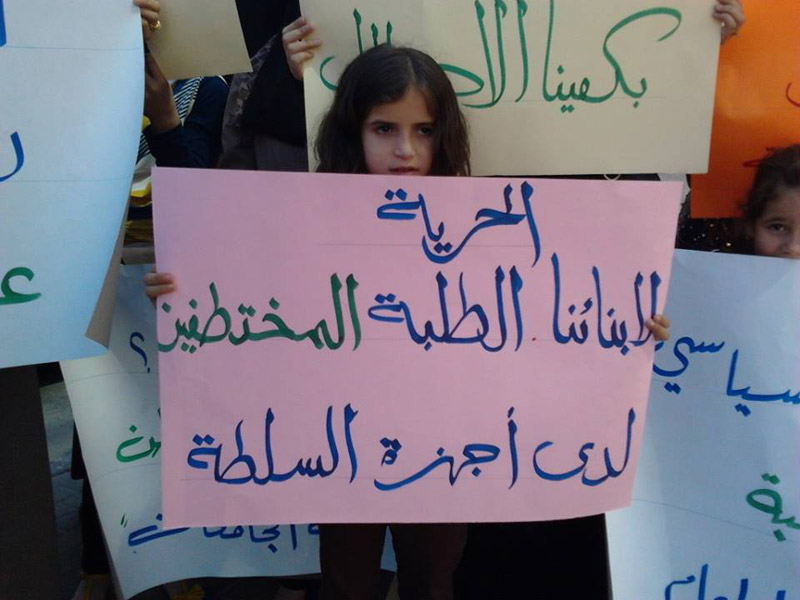 بكفينا الاحتلال
الحرية
لابنائنا الطلبة المختطفين
لدى أجهزة السلطة
سياسي
؟